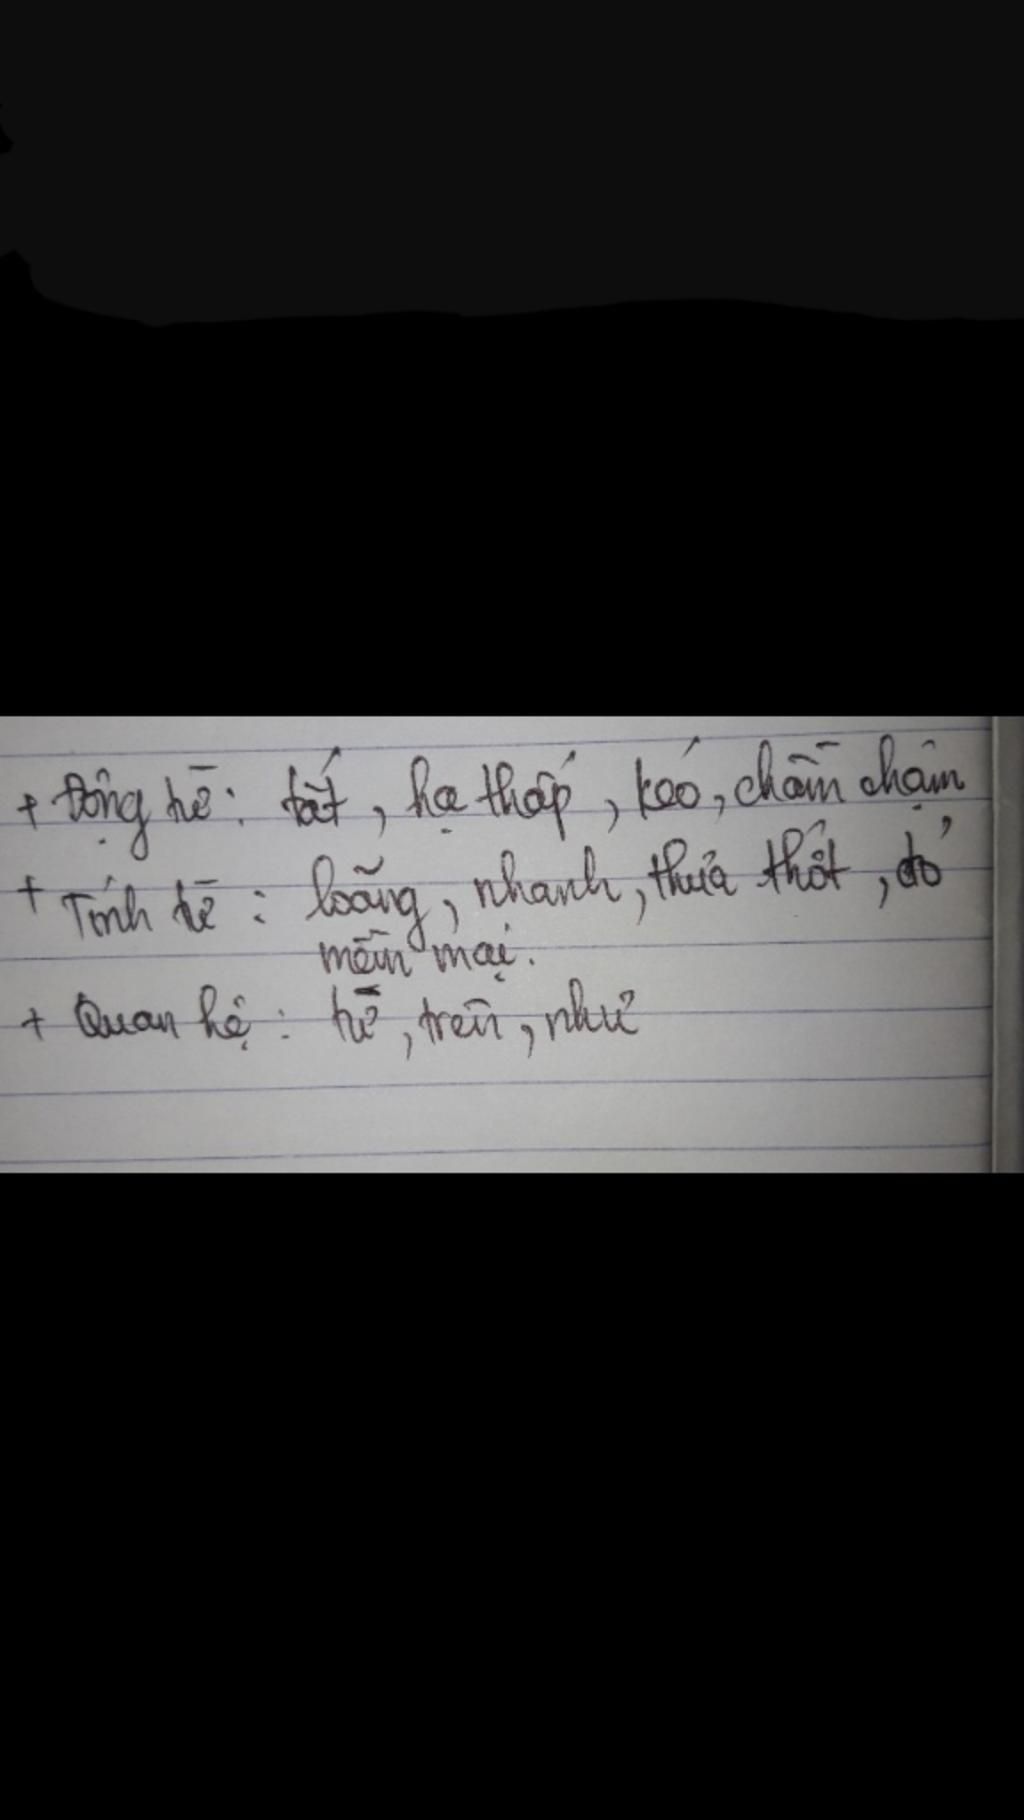 + Động từ: tắt, hạ thấp, kéo, chầm chậm
+ Tính từ: loãng, nhanh, thưa thớt, đỏ
mềm mại.
+ Quan hệ: từ, trên, như